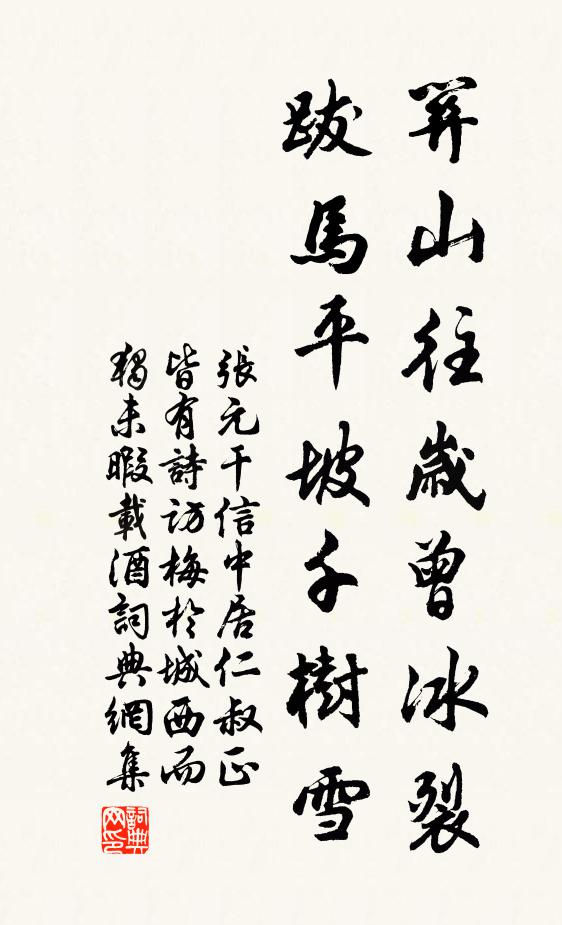 笄山往歲曾冰裂
跋馬平坡千樹雪
張元干信中居仁叔正
皆有詩訪梅於城西而
獨未暇載酒詞典網集
詞典网印